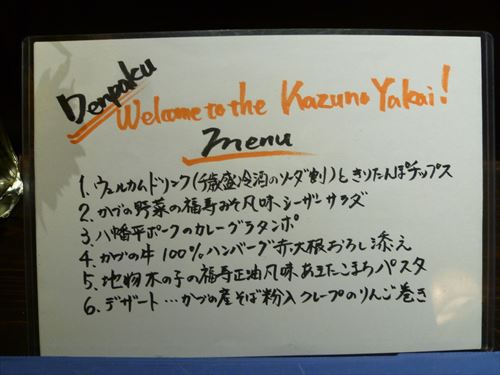 Denpaku
Welcome to the Kazuno Yakai!
menu
1. ウェルカムドリンク(千歳盛冷酒のソーダ割)ときりたんぽチップス
2. かづの野菜の福寿みそ風味シーザーサラダ
3. 八幡平ポークのカレーグラタンポ
4. かづの牛100%ハンバーグ赤大根おろし添え
5. 地物木の子の福寿正油風味あきたこまちパスタ
6. デザート…かづの産そば粉入クレープのりんご巻き